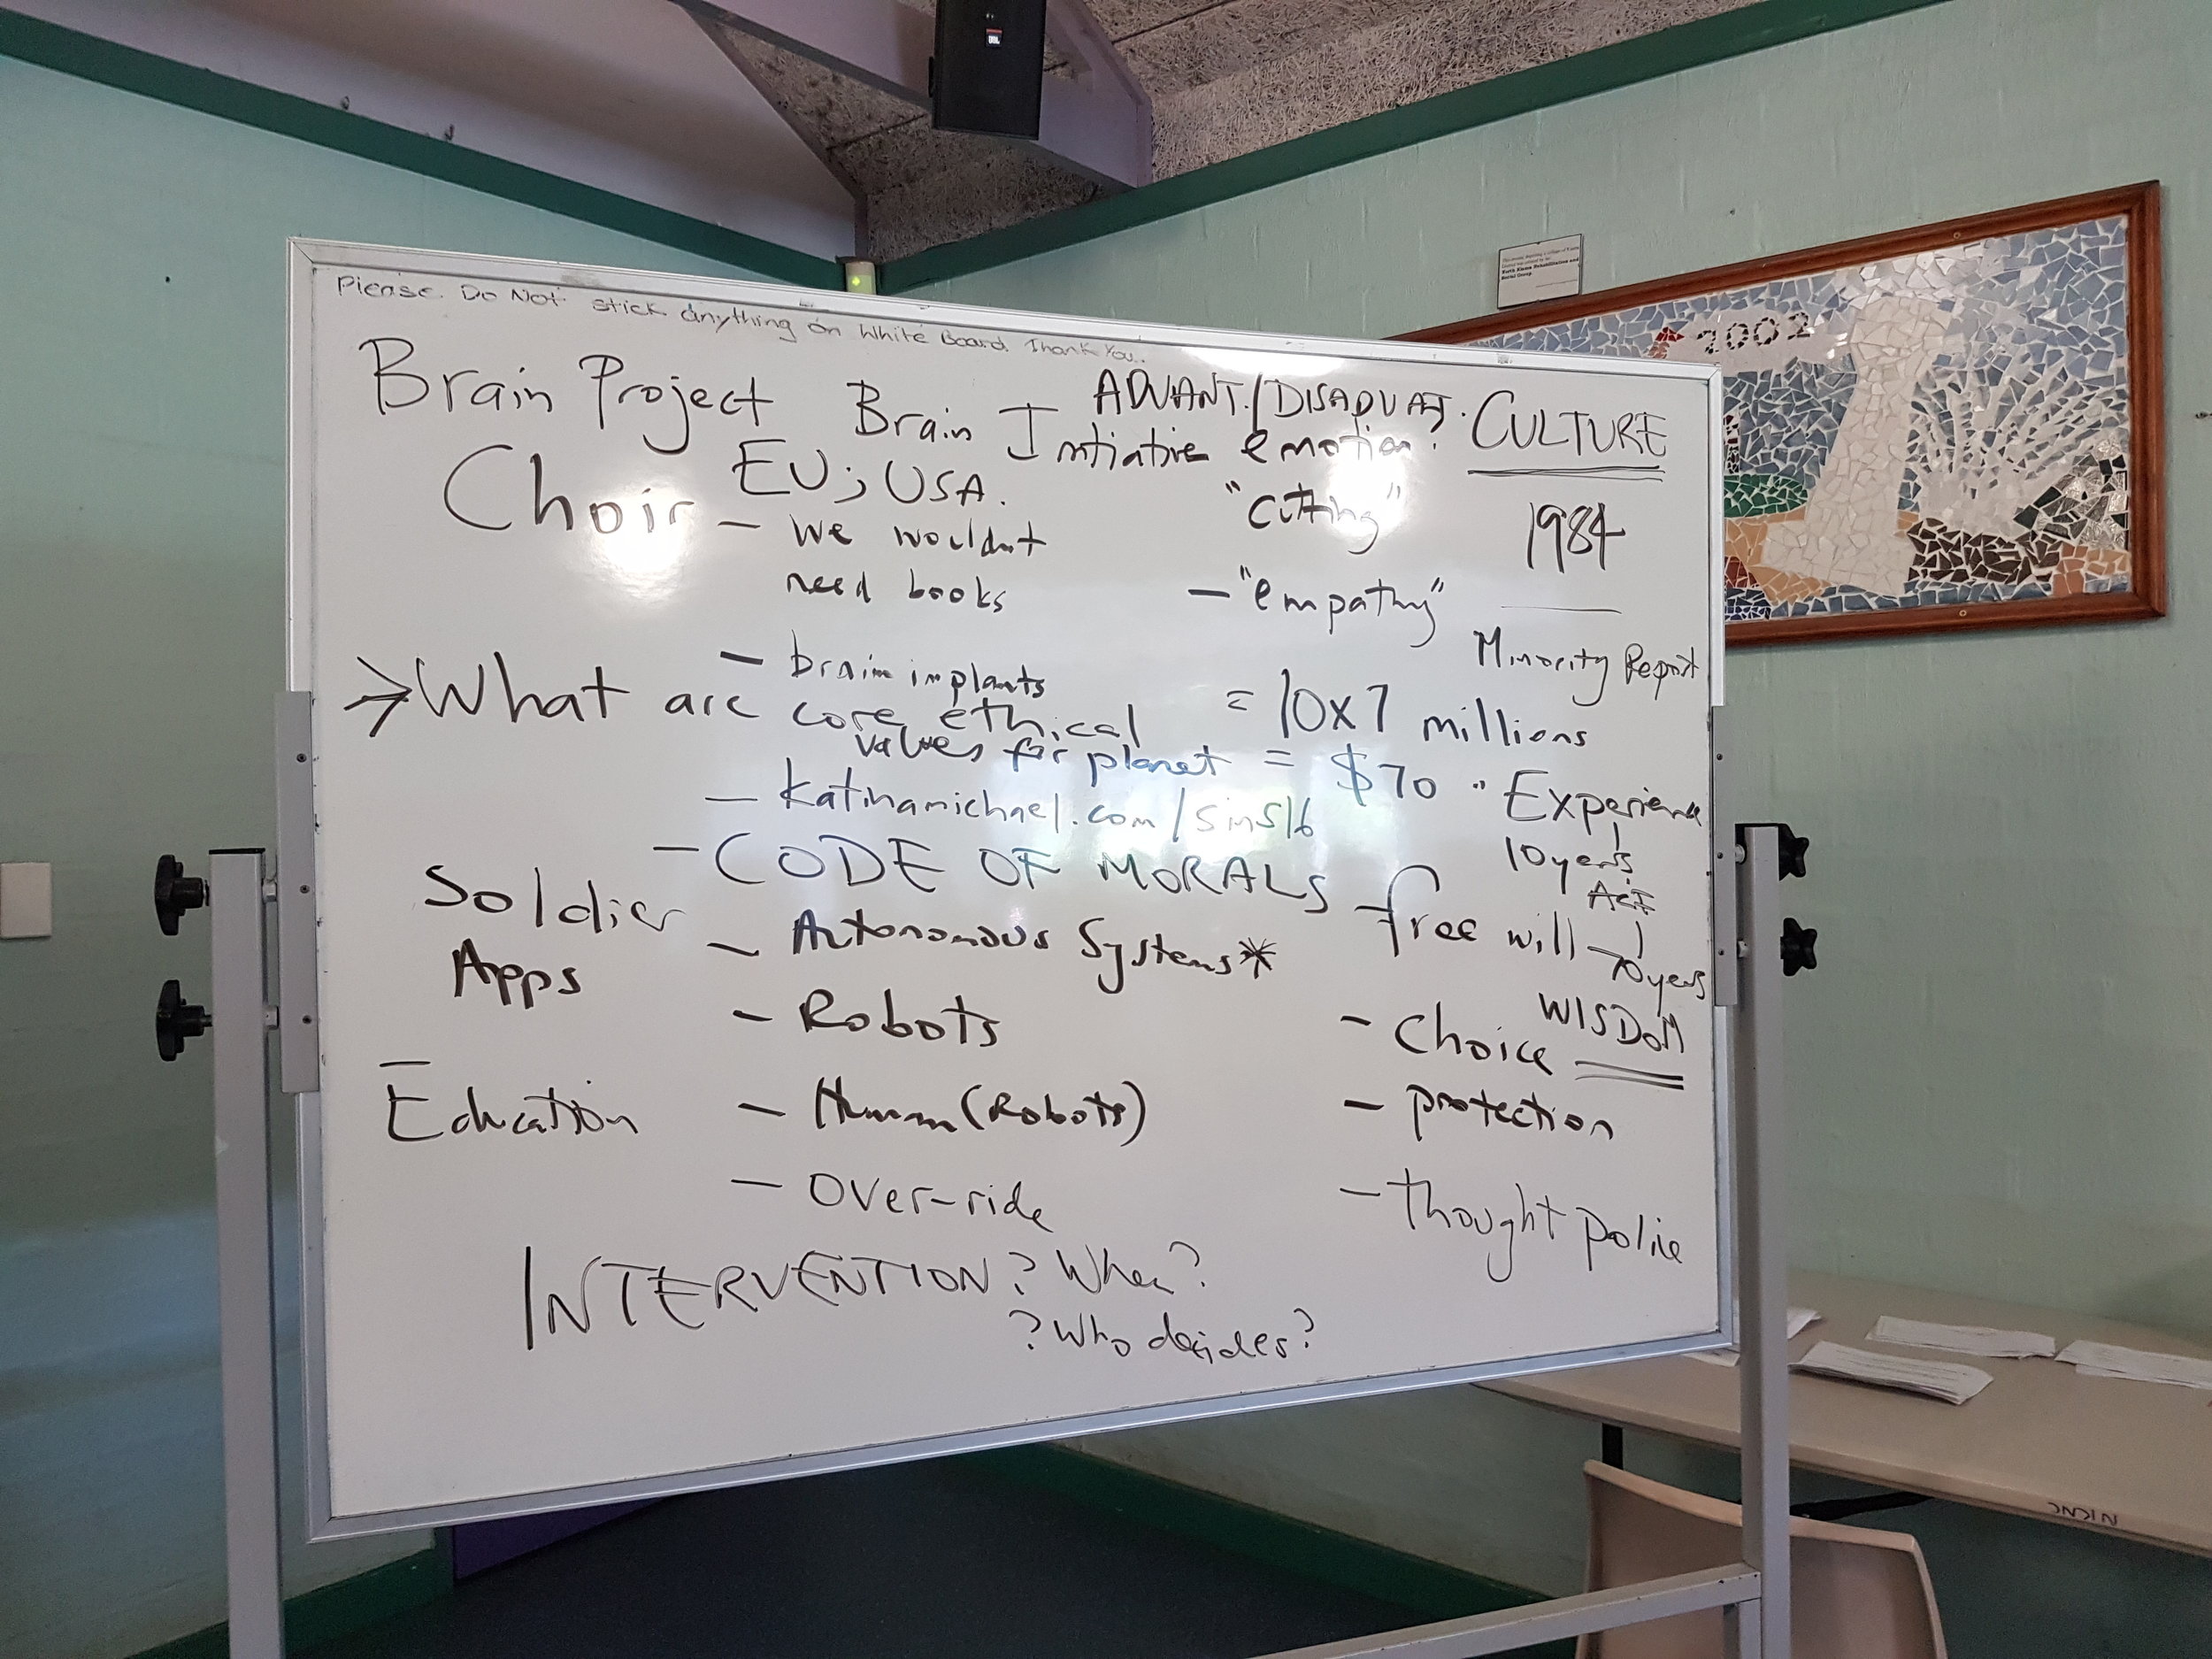 Please Do Not stick anything on White Board. Thank You.
Brain Project Brain Intiative
ADVANT./DISADVAT.
CULTURE
EU; USA.
emotion?
Choir
- we wouldnt
need books
"cutting"
1984
- "empathy"
Minority Report
- brain implants
→ What are core ethical
values for planet
= 10x7 millions
= $70 "
- katinamichael.com/sins16
Experience
10 years
- CODE OF MORALS
Soldier
Apps
- Autonomous Systems*
- free will
70 years
WISDOM
- Robots
- choice
Education
- Human (Robots)
- protection
- over-ride
- thought police
INTERVENTION? When?
? Who decides?
2002
North Kiama Rehabilitation and
Social Group
JBL
NKNC